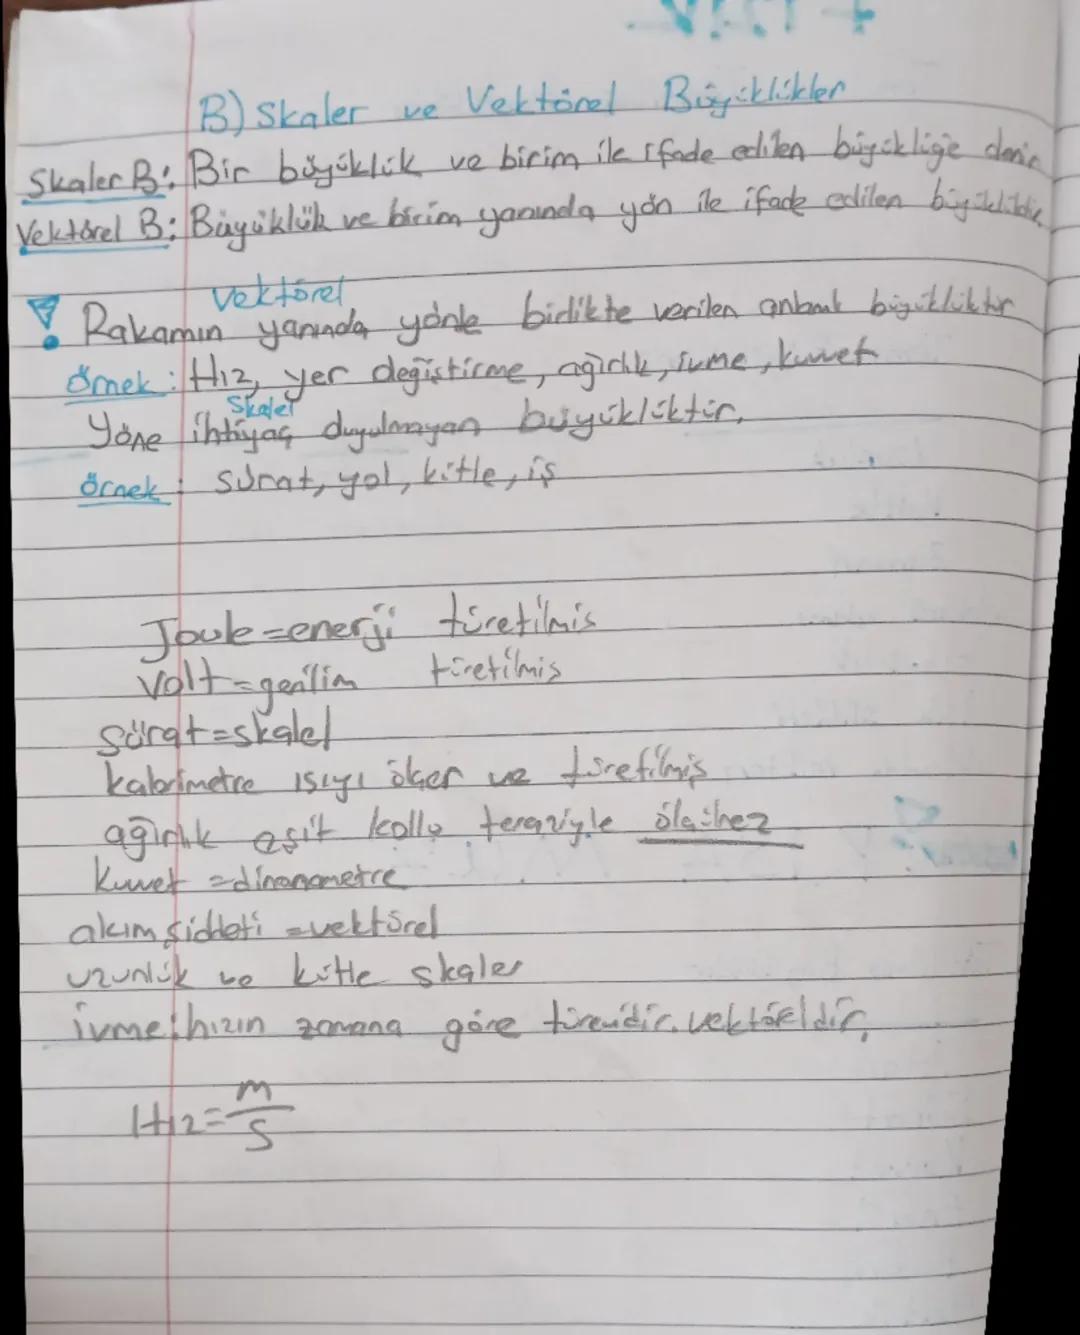 B) Skaler ve Vektörel Büyüklükler
Skaler B: Bir büyüklük ve birim ile ifade edilen büyüklüğe denir
Vektörel B: Büyüklük ve birim yanında yön ile ifade edilen büyüklüktür
Vektörel
! Rakamın yanında yönle birlikte verilen anlamlı büyüklüktür
örnek: Hız, yer değiştirme, ağırlık, ivme, kuvvet
Skaler
Yöne ihtiyaç duyulmayan büyüklüktür.
örnek: sürat, yol, kütle, iş
Joule=enerji türetilmiş
Volt=gerilim türetilmis
sürat=skaler
kalorimetre ısıyı ölçer ve türetilmiş
ağırlık eşit kollu teraziyle ölçülmez
kuvvet =dinamometre
akım şiddeti =vektörel
uzunluk ve kütle skaler
ivme: hızın zamana göre türevidir. vektöreldir.
Hız=m/s